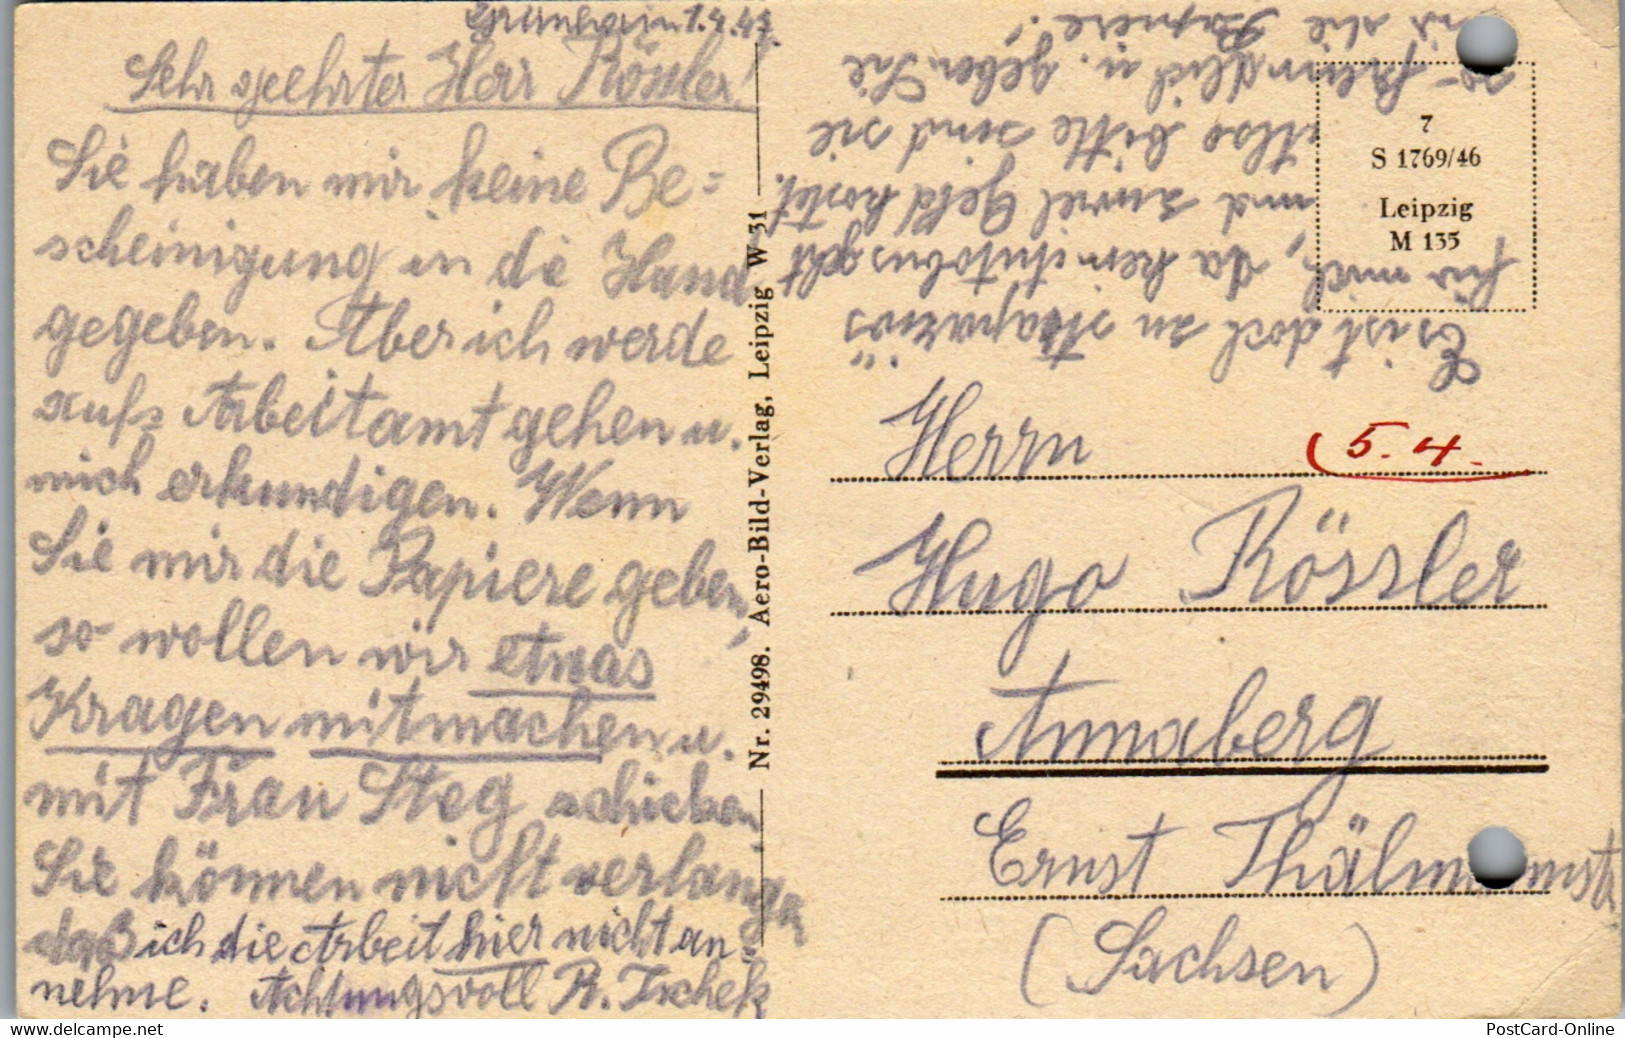 1.4.47.
Sehr geehrter Herr Rössler!
Sie haben mir keine Be=
scheinigung in die Hand
gegeben. Aber ich werde
aufs Arbeitamt gehen u.
mich erkundigen. Wenn
Sie mir die Papiere geben,
so wollen wir etwas
Kragen mitmachen u.
mit Frau Steg schicken
Sie können nicht verlangen
daß ich die Arbeit hier nicht an=
nehme. Achtungsvoll R. Tschek
Es ist doch zu
für mich, da kein Autobus geht
und zuviel Geld kostet.
Also bitte sind sie
so freundlich u. geben Sie
mir die Papiere!
Nr. 29498. Aero-Bild-Verlag, Leipzig W 31
7
S 1769/46
Leipzig
M 135
Herrn
5.4.
Hugo Rössler
Annaberg
Ernst Thälmannstr
(Sachsen)
www.delcampe.net
PostCard-Online